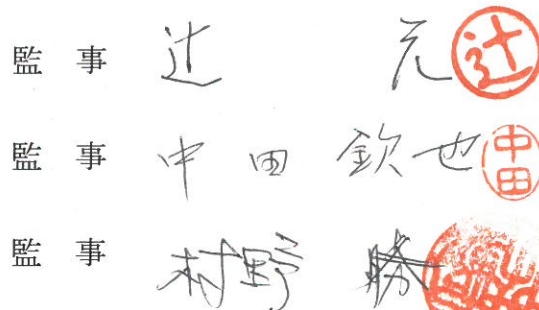 監事 辻 元 辻
監事 中田 欽也 中田
監事 村野 勝